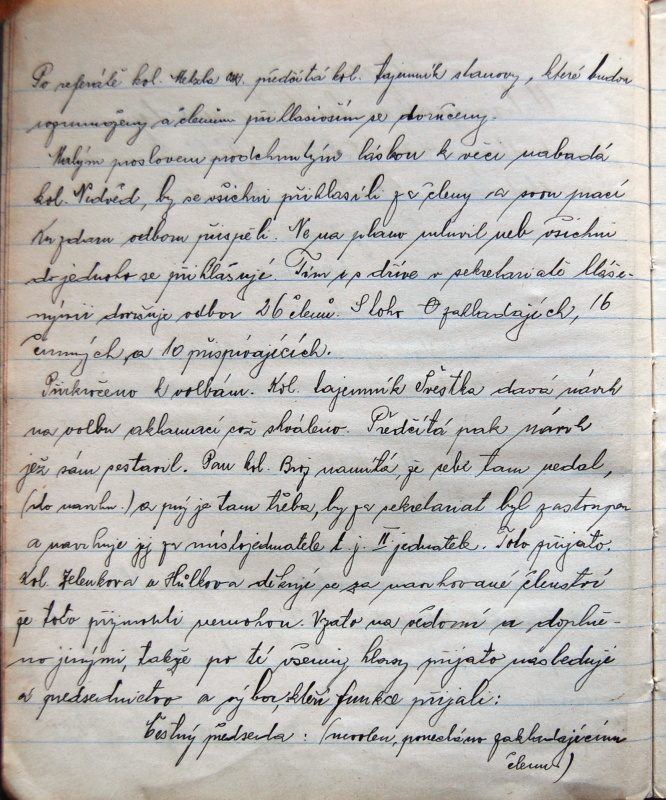 Po referátě kol. předčítá kol. tajemník stanovy, které budou
rozmnoženy a členům přihlásivším se doručeny.
Malým proslovem prodchnutým láskou k věci nabádá
kol. Nedvěd, by se všichni přihlásili za členy a svou prací
zdaru odboru přispěli. Ne na plano mluvil neb všichni
do jednoho se přihlašují. Tím i s dříve v sekretariatě hláše-
nými docisuje odbor 26 členů. S toho 0 zakladajících, 16
činných, a 10 přispívajících.
Přikročeno k volbám. Kol. tajemník Švestka dává návrh
na volbu aklamací což shváleno. Předčítá pak návrh
jež sám sestavil. Pan kol. Brož namítá, že sebe tam nedal,
(do návrhu.) a prý je tam třeba, by za sekretariat byl zastoupen
a navrhuje jej za místojednatele t. j. II jednatek. Toto přijato.
Kol. Jelenkova a Hůlkova děkují se za navrhované členství
že toto přijmouti nemohou. Vzato na vědomí a doplně-
no jinými, takže po té všemi hlasy přijato následující
předsednictvo a výbor, kteří funkce přijali:
Čestný předseda: (nevolen, ponecháno zakladajícím
členům)